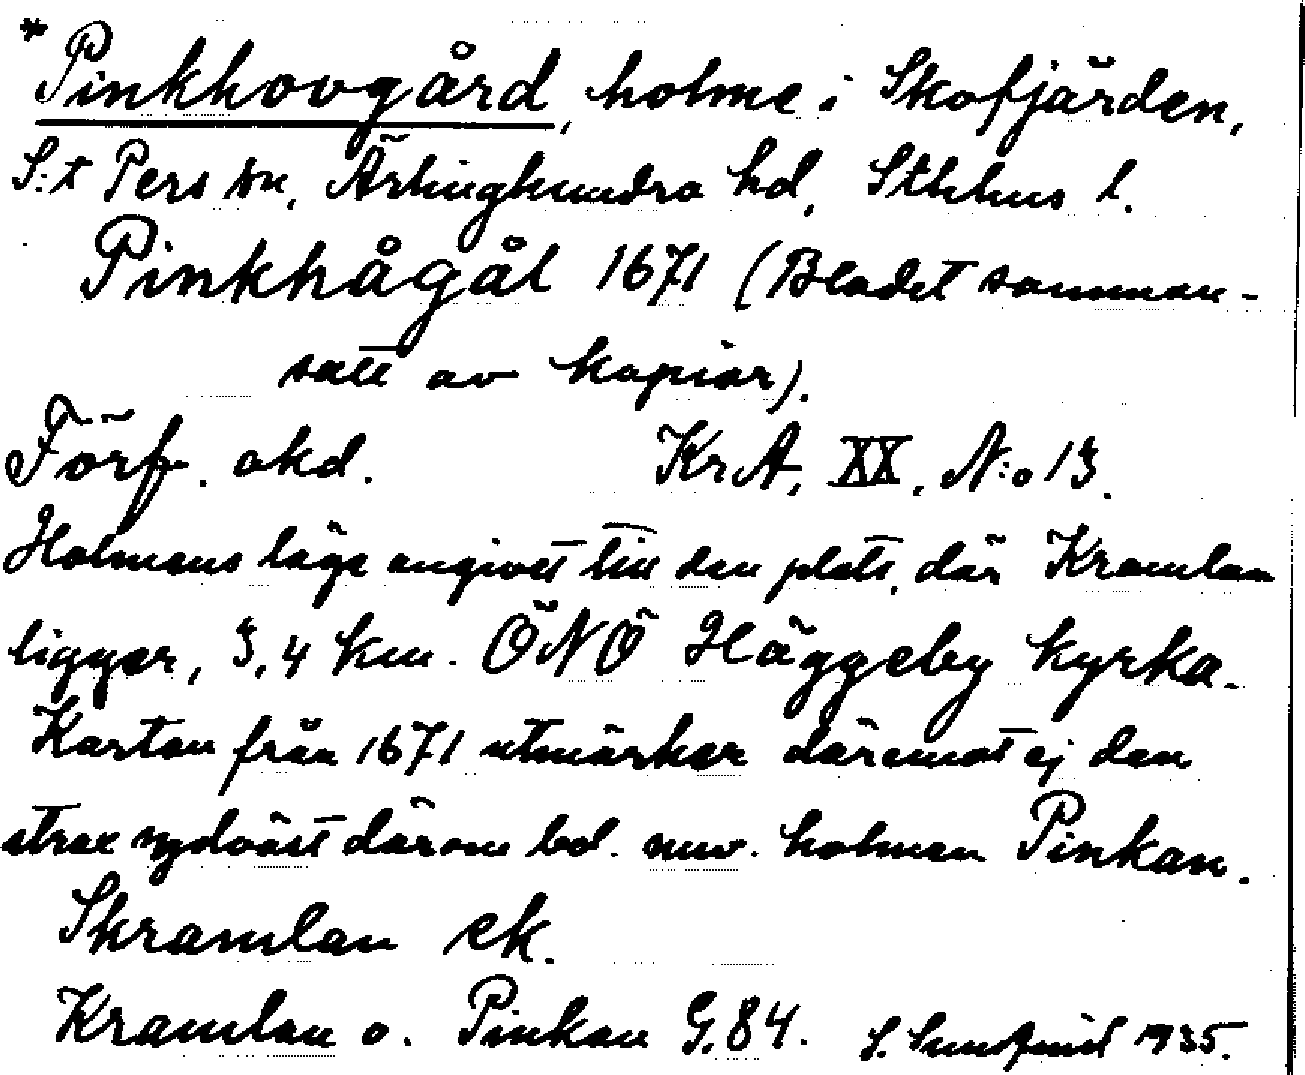 * Pinkhovgård, holme i Skofjärden,
S:t Pers sn, Ärlinghundra hd, Sthlms l.
Pinkhågål 1671 (Bladet samman-
satt av kopior).
Förf. okd. KrA, XX, N:o 13.
Holmens läge angivet till den plats, där Kramlan
ligger, 3,4 km. ÖNÖ Häggeby kyrka.
Kartan från 1671 utmärker däremot ej den
strax sydväst därom bel. nuv. holmen Pinkan.
Skramlan ek.
Kramlan o. Pinkan G.84. S. Sundquist 1935.